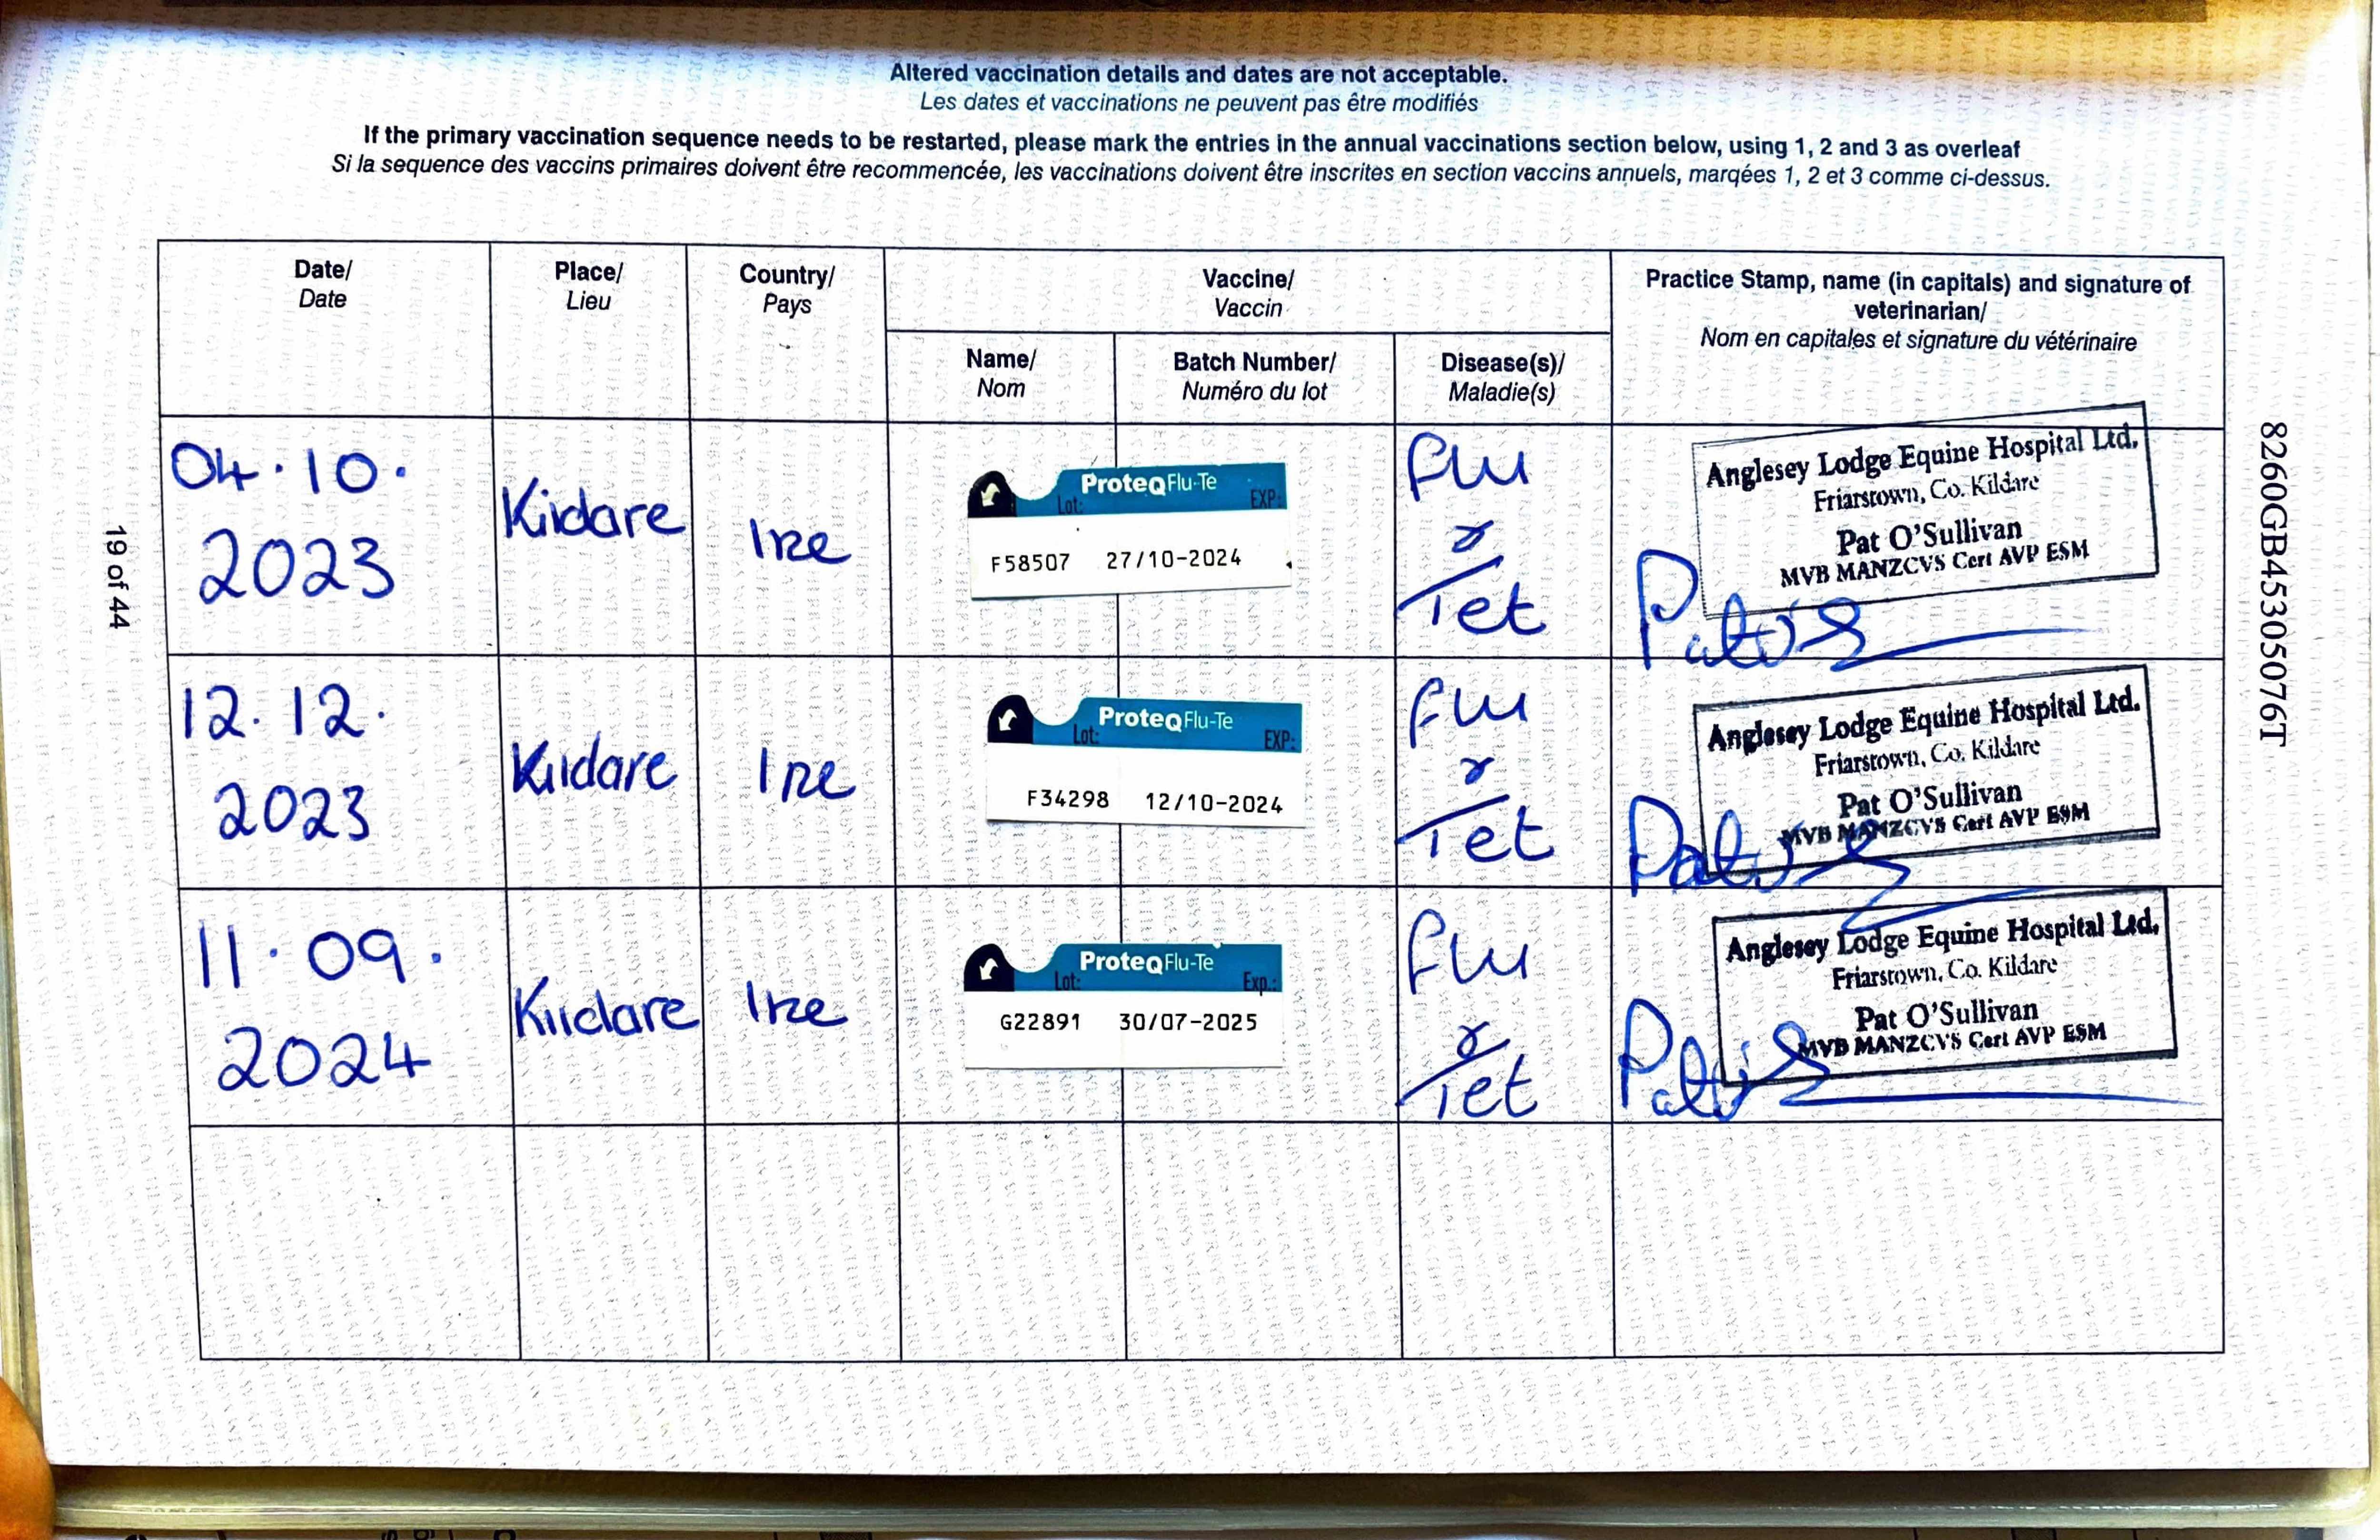 Altered vaccination details and dates are not acceptable.
Les dates et vaccinations ne peuvent pas être modifiés
If the primary vaccination sequence needs to be restarted, please mark the entries in the annual vaccinations section below, using 1, 2 and 3 as overleaf
Si la sequence des vaccins primaires doivent être recommencée, les vaccinations doivent être inscrites en section vaccins annuels, marqées 1, 2 et 3 comme ci-dessus.
Date/
Date
Place/
Lieu
Country/
Pays
Vaccine/
Vaccin
Name/
Nom
Batch Number/
Numéro du lot
Disease(s)/
Maladie(s)
Practice Stamp, name (in capitals) and signature of
veterinarian/
Nom en capitales et signature du vétérinaire
04.10.
2023
Kildare
Ire
ProteqFlu-Te
Lot: EXP:
F58507 27/10-2024
Flu
&
Tet
Anglesey Lodge Equine Hospital Ltd.
Friarstown, Co. Kildare
Pat O'Sullivan
MVB MANZCVS Cert AVP ESM
12.12.
2023
Kildare
Ire
ProteqFlu-Te
Lot: EXP:
F34298 12/10-2024
Flu
&
Tet
Anglesey Lodge Equine Hospital Ltd.
Friarstown, Co. Kildare
Pat O'Sullivan
MVB MANZCVS Cert AVP ESM
11.09.
2024
Kildare
Ire
ProteqFlu-Te
Lot: Exp.:
G22891 30/07-2025
Flu
&
Tet
Anglesey Lodge Equine Hospital Ltd.
Friarstown, Co. Kildare
Pat O'Sullivan
MVB MANZCVS Cert AVP ESM
19 of 44
8260GB45305076T